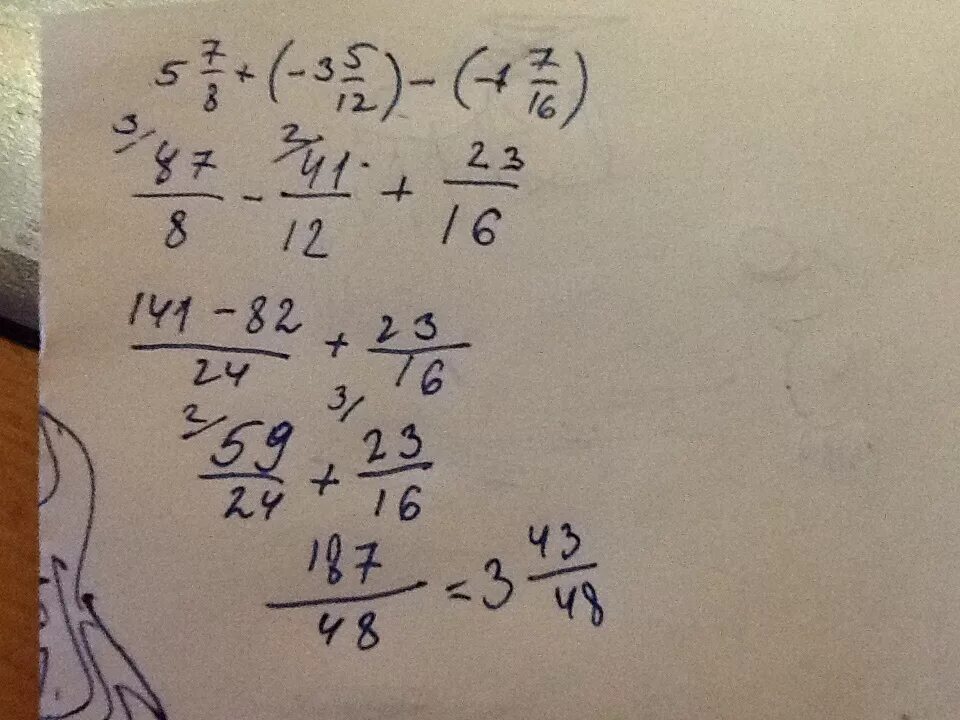 5 7/8 + (-3 5/12) - (-1 7/16)
3/ 47/8 - 2/ 41/12 + 23/16
141 - 82/24 + 23/16
2/ 59/24 + 3/ 23/16
187/48 = 3 43/48